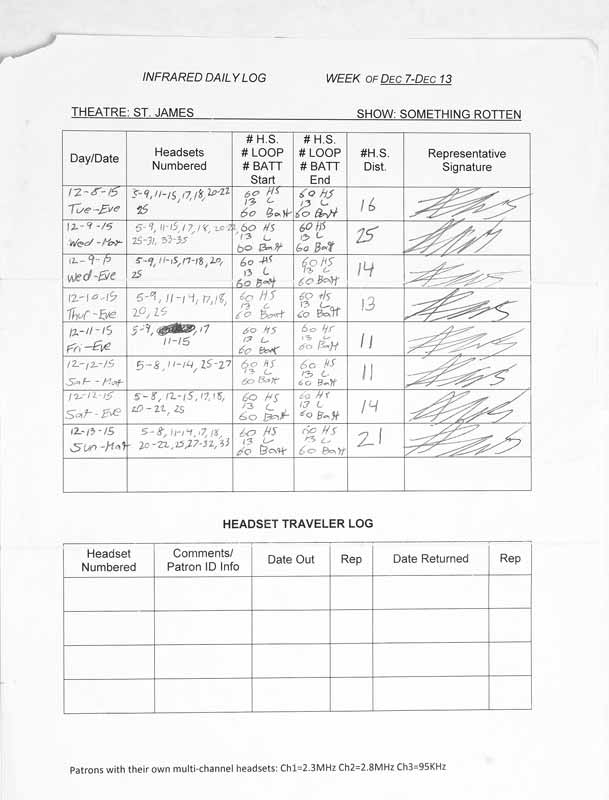 INFRARED DAILY LOG WEEK OF DEC 7-DEC 13
THEATRE: ST. JAMES SHOW: SOMETHING ROTTEN
Day/Date
Headsets
Numbered
# H.S.
# LOOP
# BATT
Start
# H.S.
# LOOP
# BATT
End
#H.S.
Dist.
Representative
Signature
12-8-15
Tue-Eve
5-9, 11-15, 17, 18, 20-22
25
60 HS
13 L
60 Batt
60 HS
13 L
60 Batt
16
12-9-15
Wed-Mat
5-9, 11-15, 17, 18, 20-22
25-31, 33-35
60 HS
13 L
60 Batt
60 HS
13 L
60 Batt
25
12-9-15
Wed-Eve
5-9, 11-15, 17-18, 20,
25
60 HS
13 L
60 Batt
60 HS
13 L
60 Batt
14
12-10-15
Thur-Eve
5-9, 11-14, 17, 18,
20, 25
60 HS
13 L
60 Batt
60 HS
13 L
60 Batt
13
12-11-15
Fri-Eve
5-9, 17
11-15
60 HS
13 L
60 Batt
60 HS
13 L
60 Batt
11
12-12-15
Sat-Mat
5-8, 11-14, 25-27
60 HS
13 L
60 Batt
60 HS
13 L
60 Batt
11
12-12-15
Sat-Eve
5-8, 12-15, 17, 18,
20-22, 25
60 HS
13 L
60 Batt
60 HS
13 L
60 Batt
14
12-13-15
Sun-Mat
5-8, 11-14, 17, 18,
20-22, 25, 27-32, 33
60 HS
13 L
60 Batt
60 HS
13 L
60 Batt
21
HEADSET TRAVELER LOG
Headset
Numbered
Comments/
Patron ID Info
Date Out
Rep
Date Returned
Rep
Patrons with their own multi-channel headsets: Ch1=2.3MHz Ch2=2.8MHz Ch3=95KHz